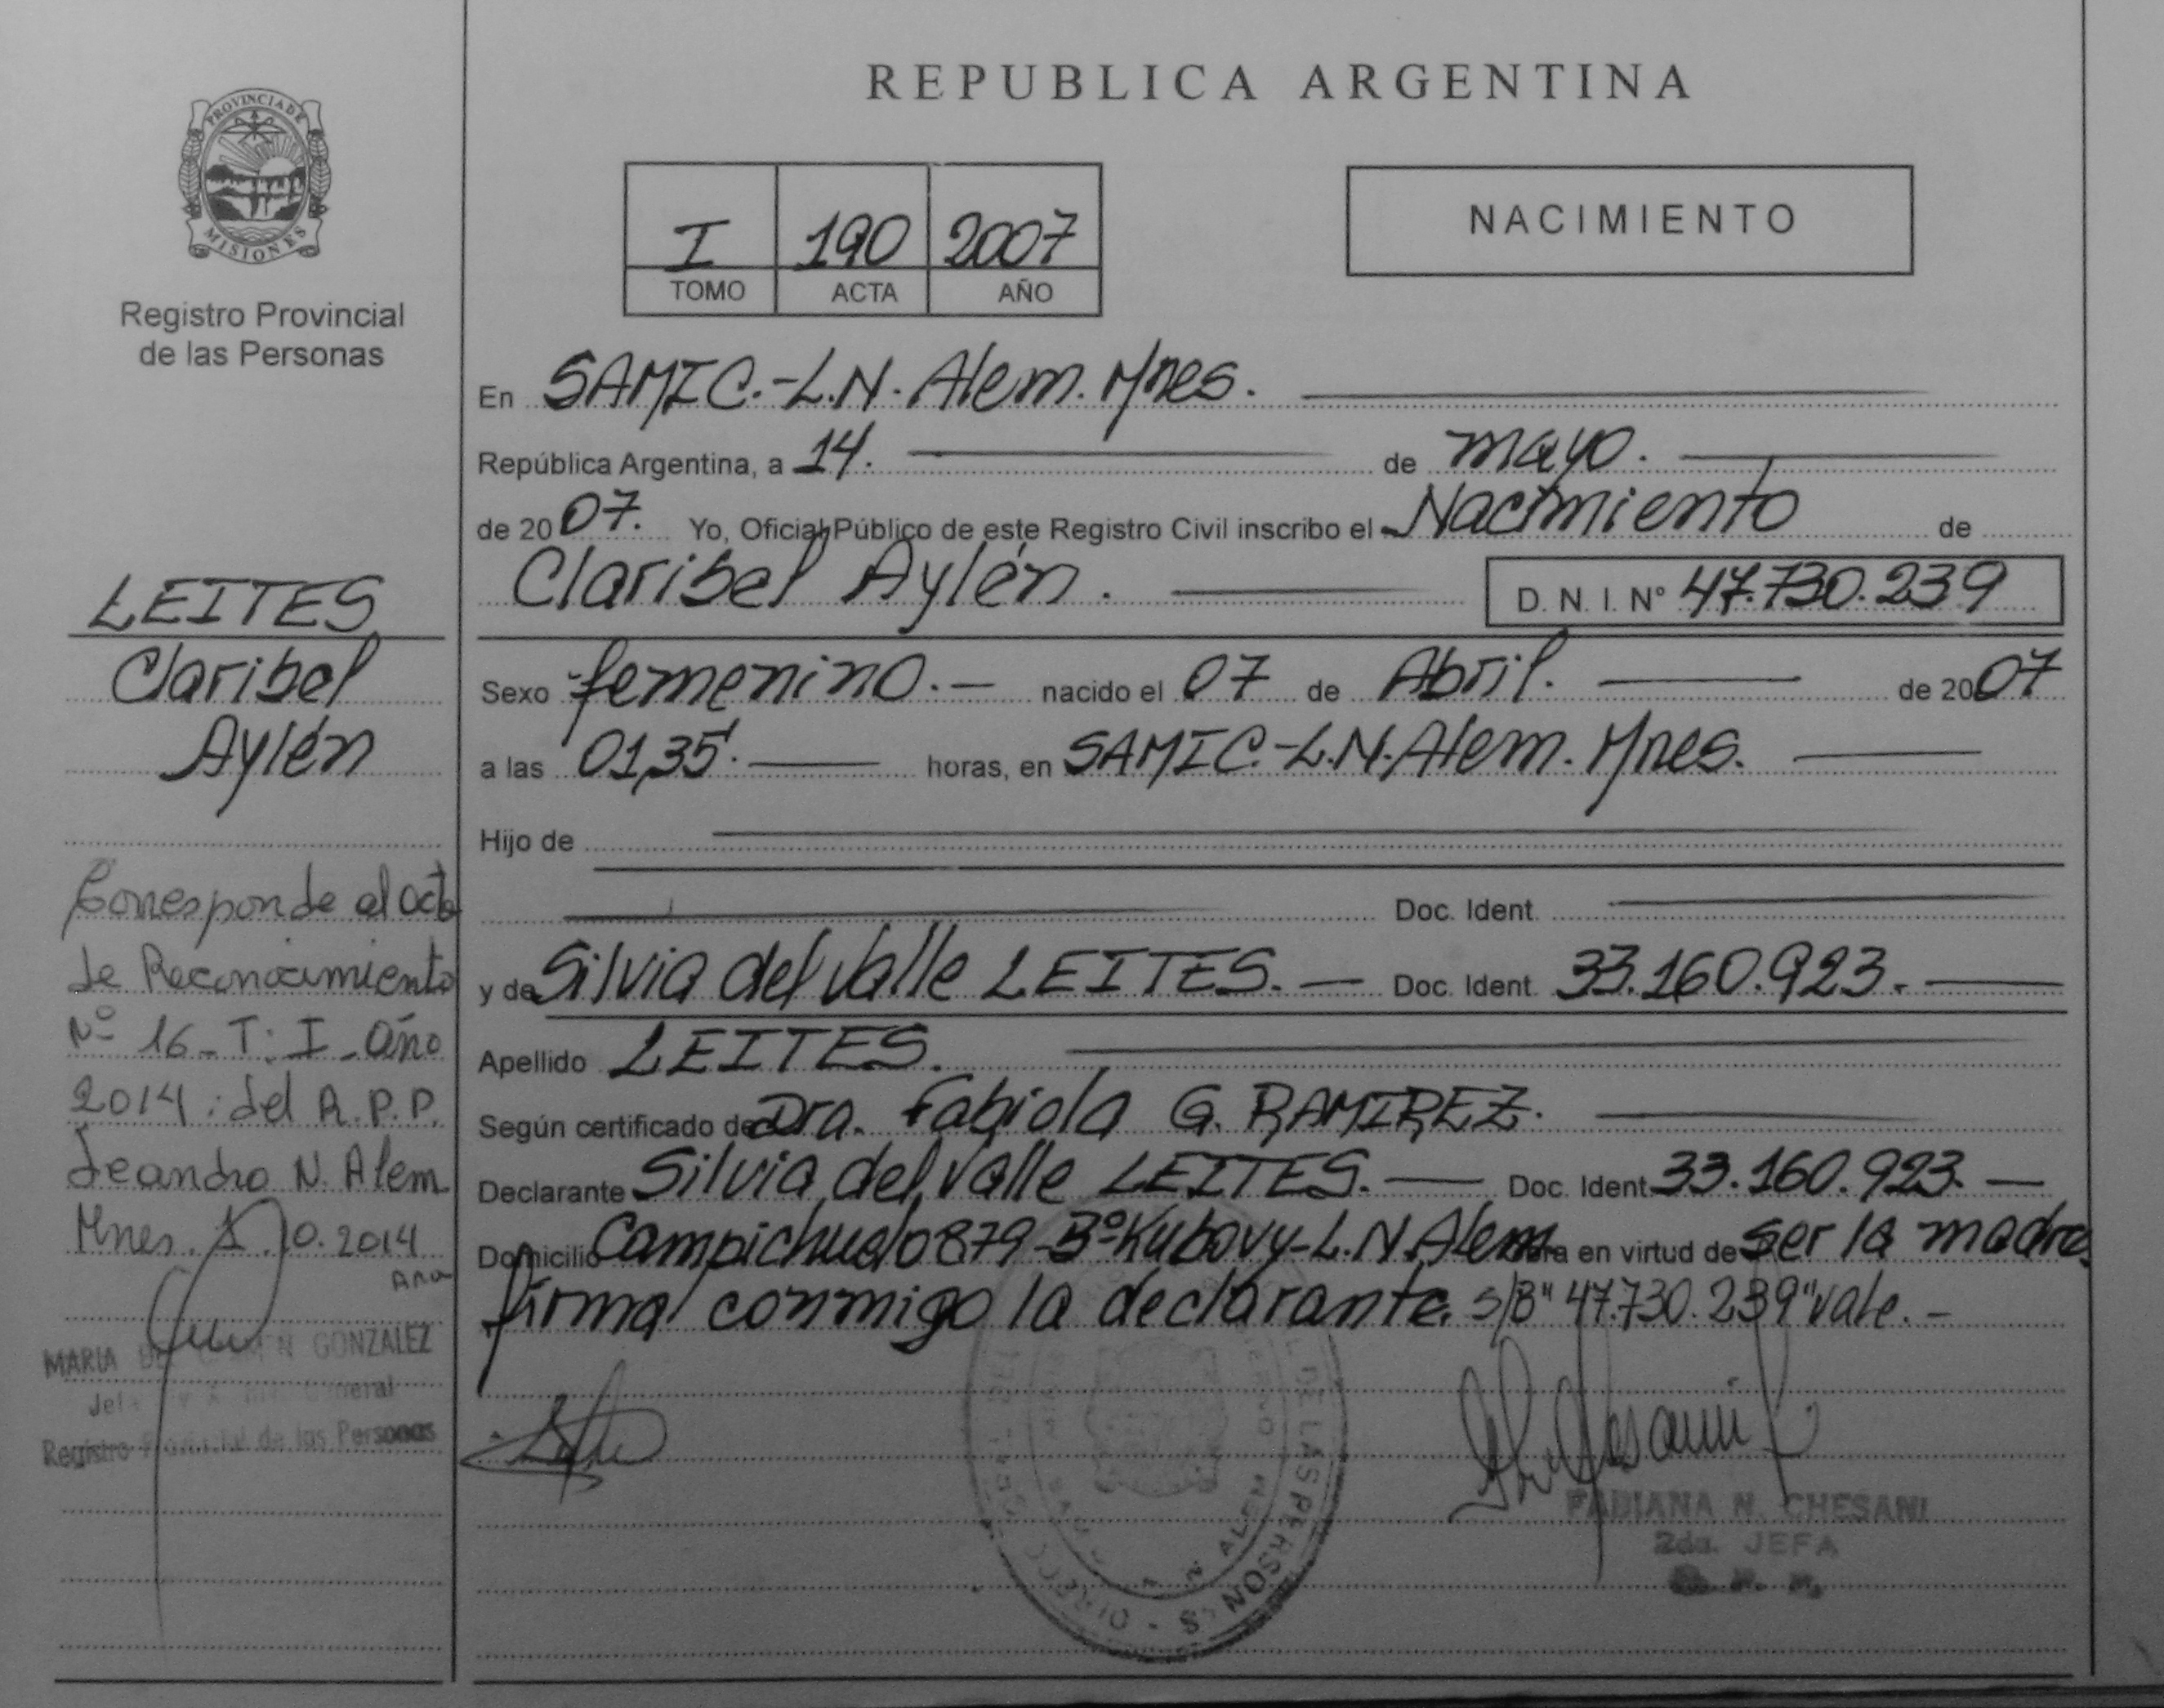 REPUBLICA ARGENTINA
PROVINCIA DE
MISIONES
Registro Provincial
de las Personas
I 190 2007
TOMO ACTA AÑO
NACIMIENTO
En SAMIC.-L.N. Alem. Mnes.
República Argentina, a 14. de mayo.
de 2007. Yo, Oficial Público de este Registro Civil inscribo el Nacimiento de
Claribel Aylén. D. N. I. Nº 47.730.239
Sexo femenino.- nacido el 07 de Abril. de 2007
a las 01,35'. horas, en SAMIC.-L.N. Alem. Mnes.
Hijo de
Doc. Ident.
y de Silvia del Valle LEITES.- Doc. Ident. 33.160.923.-
Apellido LEITES.
Según certificado de Dra. Fabiola G. RAMIREZ.
Declarante Silvia del Valle LEITES.- Doc. Ident. 33.160.923.-
Domicilio Campichuelo 879-Bº Kubovy-L.N. Alem en virtud de ser la madre
firma conmigo la declarante. s/B "47.730.239" vale.-
FABIANA N. CHESANI
2da. JEFA
LEITES
Claribel
Aylén
Corresponde al acta
de Reconocimiento
Nº 16 - T: I - Año
2014 : del R.P.P.
Leandro N. Alem
Mnes. 10.2014
Ana
MARIA GONZALEZ
General
Registro Provincial de las Personas
DE LAS PERSONAS
ALEM